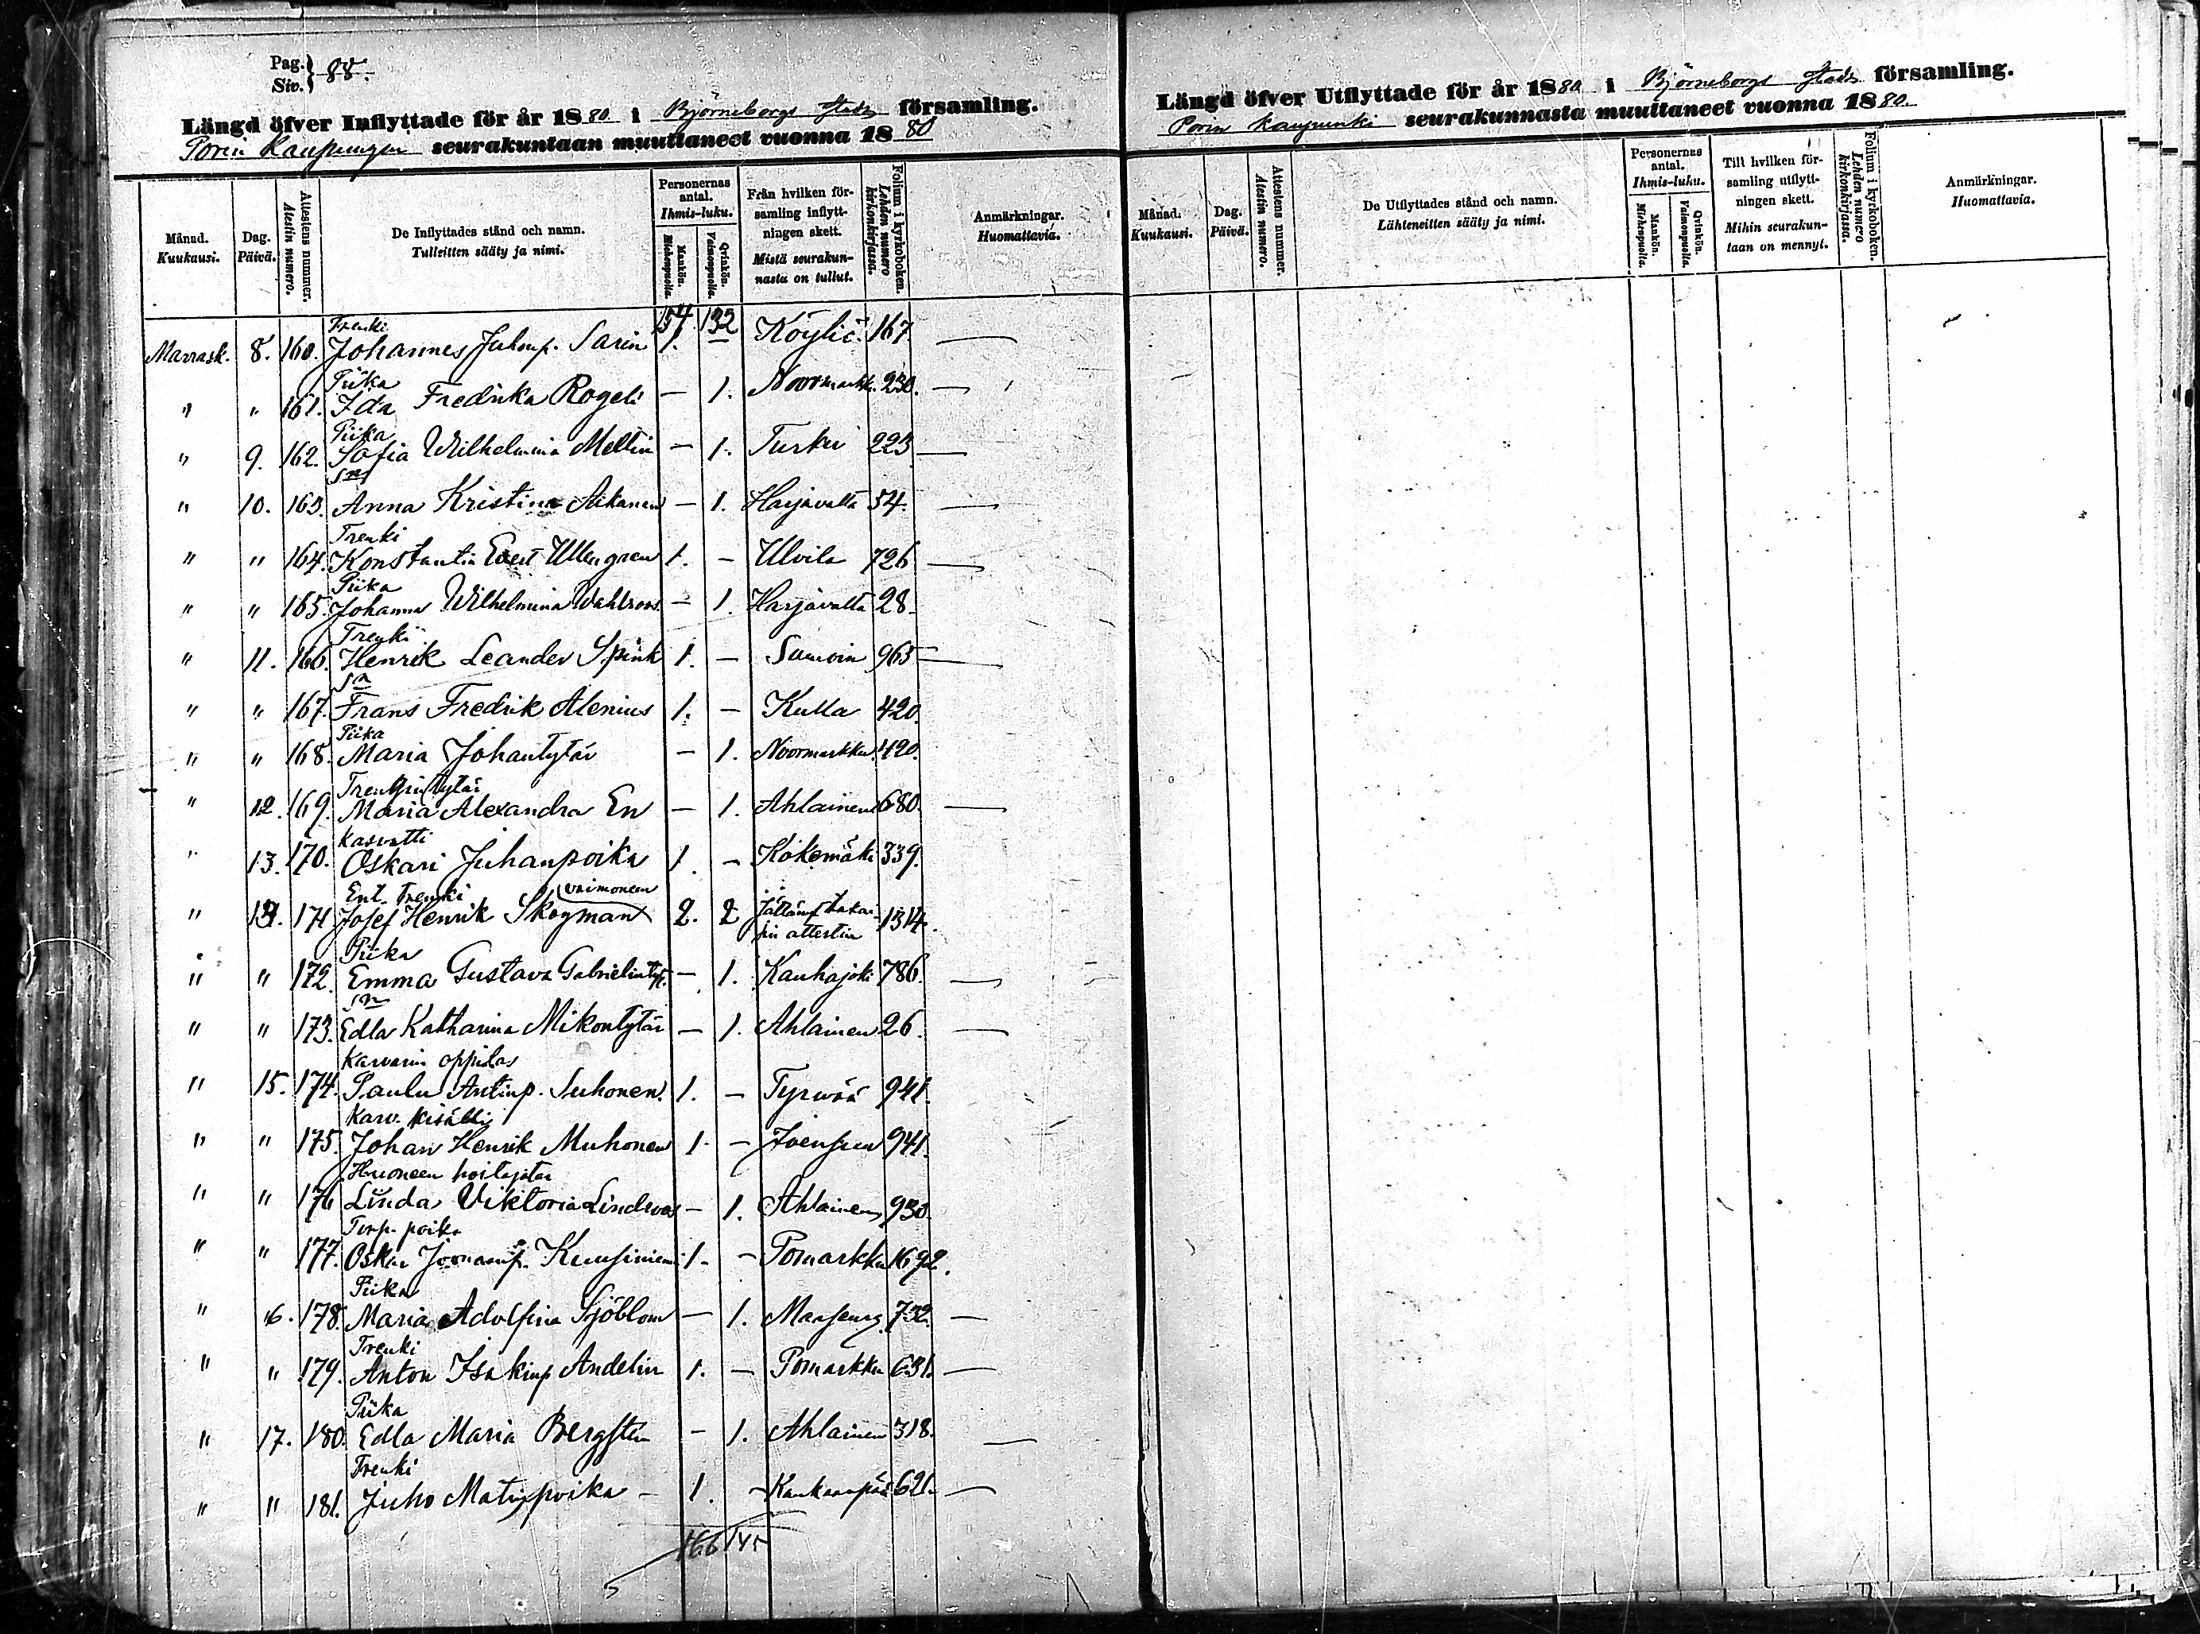 Pag. Siv. 88.
Längd öfver Inflyttade för år 1880 i Björneborgs stads församling.
Porin Kaupungin seurakuntaan muuttaneet vuonna 1880
Månad. Kuukausi.
Dag. Päivä.
Attestens nummer. Atestin numero.
De Inflyttades stånd och namn. Tulleitten sääty ja nimi.
Personernas antal. Ihmis-luku.
Mankön. Miehenpuolia.
Qvinkön. Vaimonpuolia.
Från hvilken församling inflyttningen skett. Mistä seurakunnasta on tullut.
Folium i kyrkoboken. Lehden numero kirkonkirjassa.
Anmärkningar. Huomattavia.
154 132
Trenki
Marrask. 8. 160. Johannes Juhonp. Sarin 1. — Köyliö. 167. —
Piika
" " 161. Ida Fredrika Rogeli — 1. Noormarkk. 230. —
Piika
" 9. 162. Sofia Wilhelmina Mellin — 1. Turku 223 —
sn
" 10. 163. Anna Kristina Aikanen — 1. Harjavalta 54. —
Trenki
" " 164. Konstantin Evert Ullengren 1. — Ulvila 726 —
Piika
" " 165. Johanna Wilhelmina Wahlroos — 1. Harjavalta 28.
Trenki
" 11. 166. Henrik Leander Spink 1. — 965 —
sn
" " 167. Frans Fredrik Alenius 1. — Kulla 420.
Piika
" " 168. Maria Johantytär — 1. Noormarkku. 420.
Trengin tytär
" 12. 169. Maria Alexandra En — 1. Ahlainen 680. —
Kasvatti
" 13. 170. Oskari Juhanpoika 1. — Kokemäki 339.
Ent. trenki vaimoneen
" 171 Josef Henrik Skogman 2. 2 1314.
Piika
" " 172. Emma Gustava Gabrielintyt. — 1. Kauhajoki 786. —
sn
" " 173. Edla Katharina Mikontytär — 1. Ahlainen 26. —
Karvarin oppilas
" 15. 174. Paulu Antinp. Suhonen. 1. — Tyrwää 941.
Karv. kisälli
" " 175. Johan Henrik Muhonen 1. — Joensuu 941.
Huoneen hoitajatar
" " 176 Linda Viktoria Lindroos — 1. Ahlainen 930.
Torp. poika
" " 177. Oskar Joonanp. Kuusiniemi 1. — Pomarkku 1692.
Piika
" 16. 178. Maria Adolfina Sjöblom — 1. 732. —
Trenki
" " 179. Anton Isakinp Andelin 1. — Pomarkku 631. —
Piika
" 17. 180. Edla Maria Bergsten — 1. Ahlainen 318. —
Trenki
" " 181. Juho Matinpoika — 1. — Kankaanpää 621. —
166 145
Längd öfver Utflyttade för år 1880 i Björneborgs stads församling.
Porin kaupunki seurakunnasta muuttaneet vuonna 1880.
Månad. Kuukausi.
Dag. Päivä.
Attestens nummer. Atestin numero.
De Utflyttades stånd och namn. Lähteneitten sääty ja nimi.
Personernas antal. Ihmis-luku.
Mankön. Miehenpuolia.
Qvinkön. Vaimonpuolia.
Till hvilken församling utflyttningen skett. Mihin seurakuntaan on mennyt.
Folium i kyrkoboken. Lehden numero kirkonkirjassa.
Anmärkningar. Huomattavia.